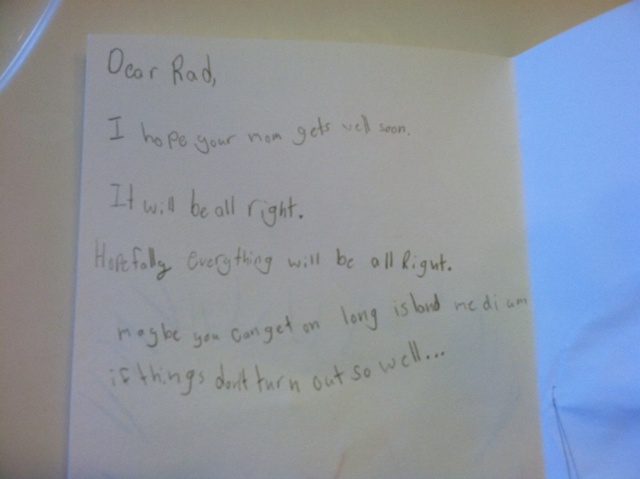 Dear Rad,
I hope your mom gets well soon.
It will be all right.
Hopefully everything will be all Right.
maybe you can get on long island medium
if things don't turn out so well...